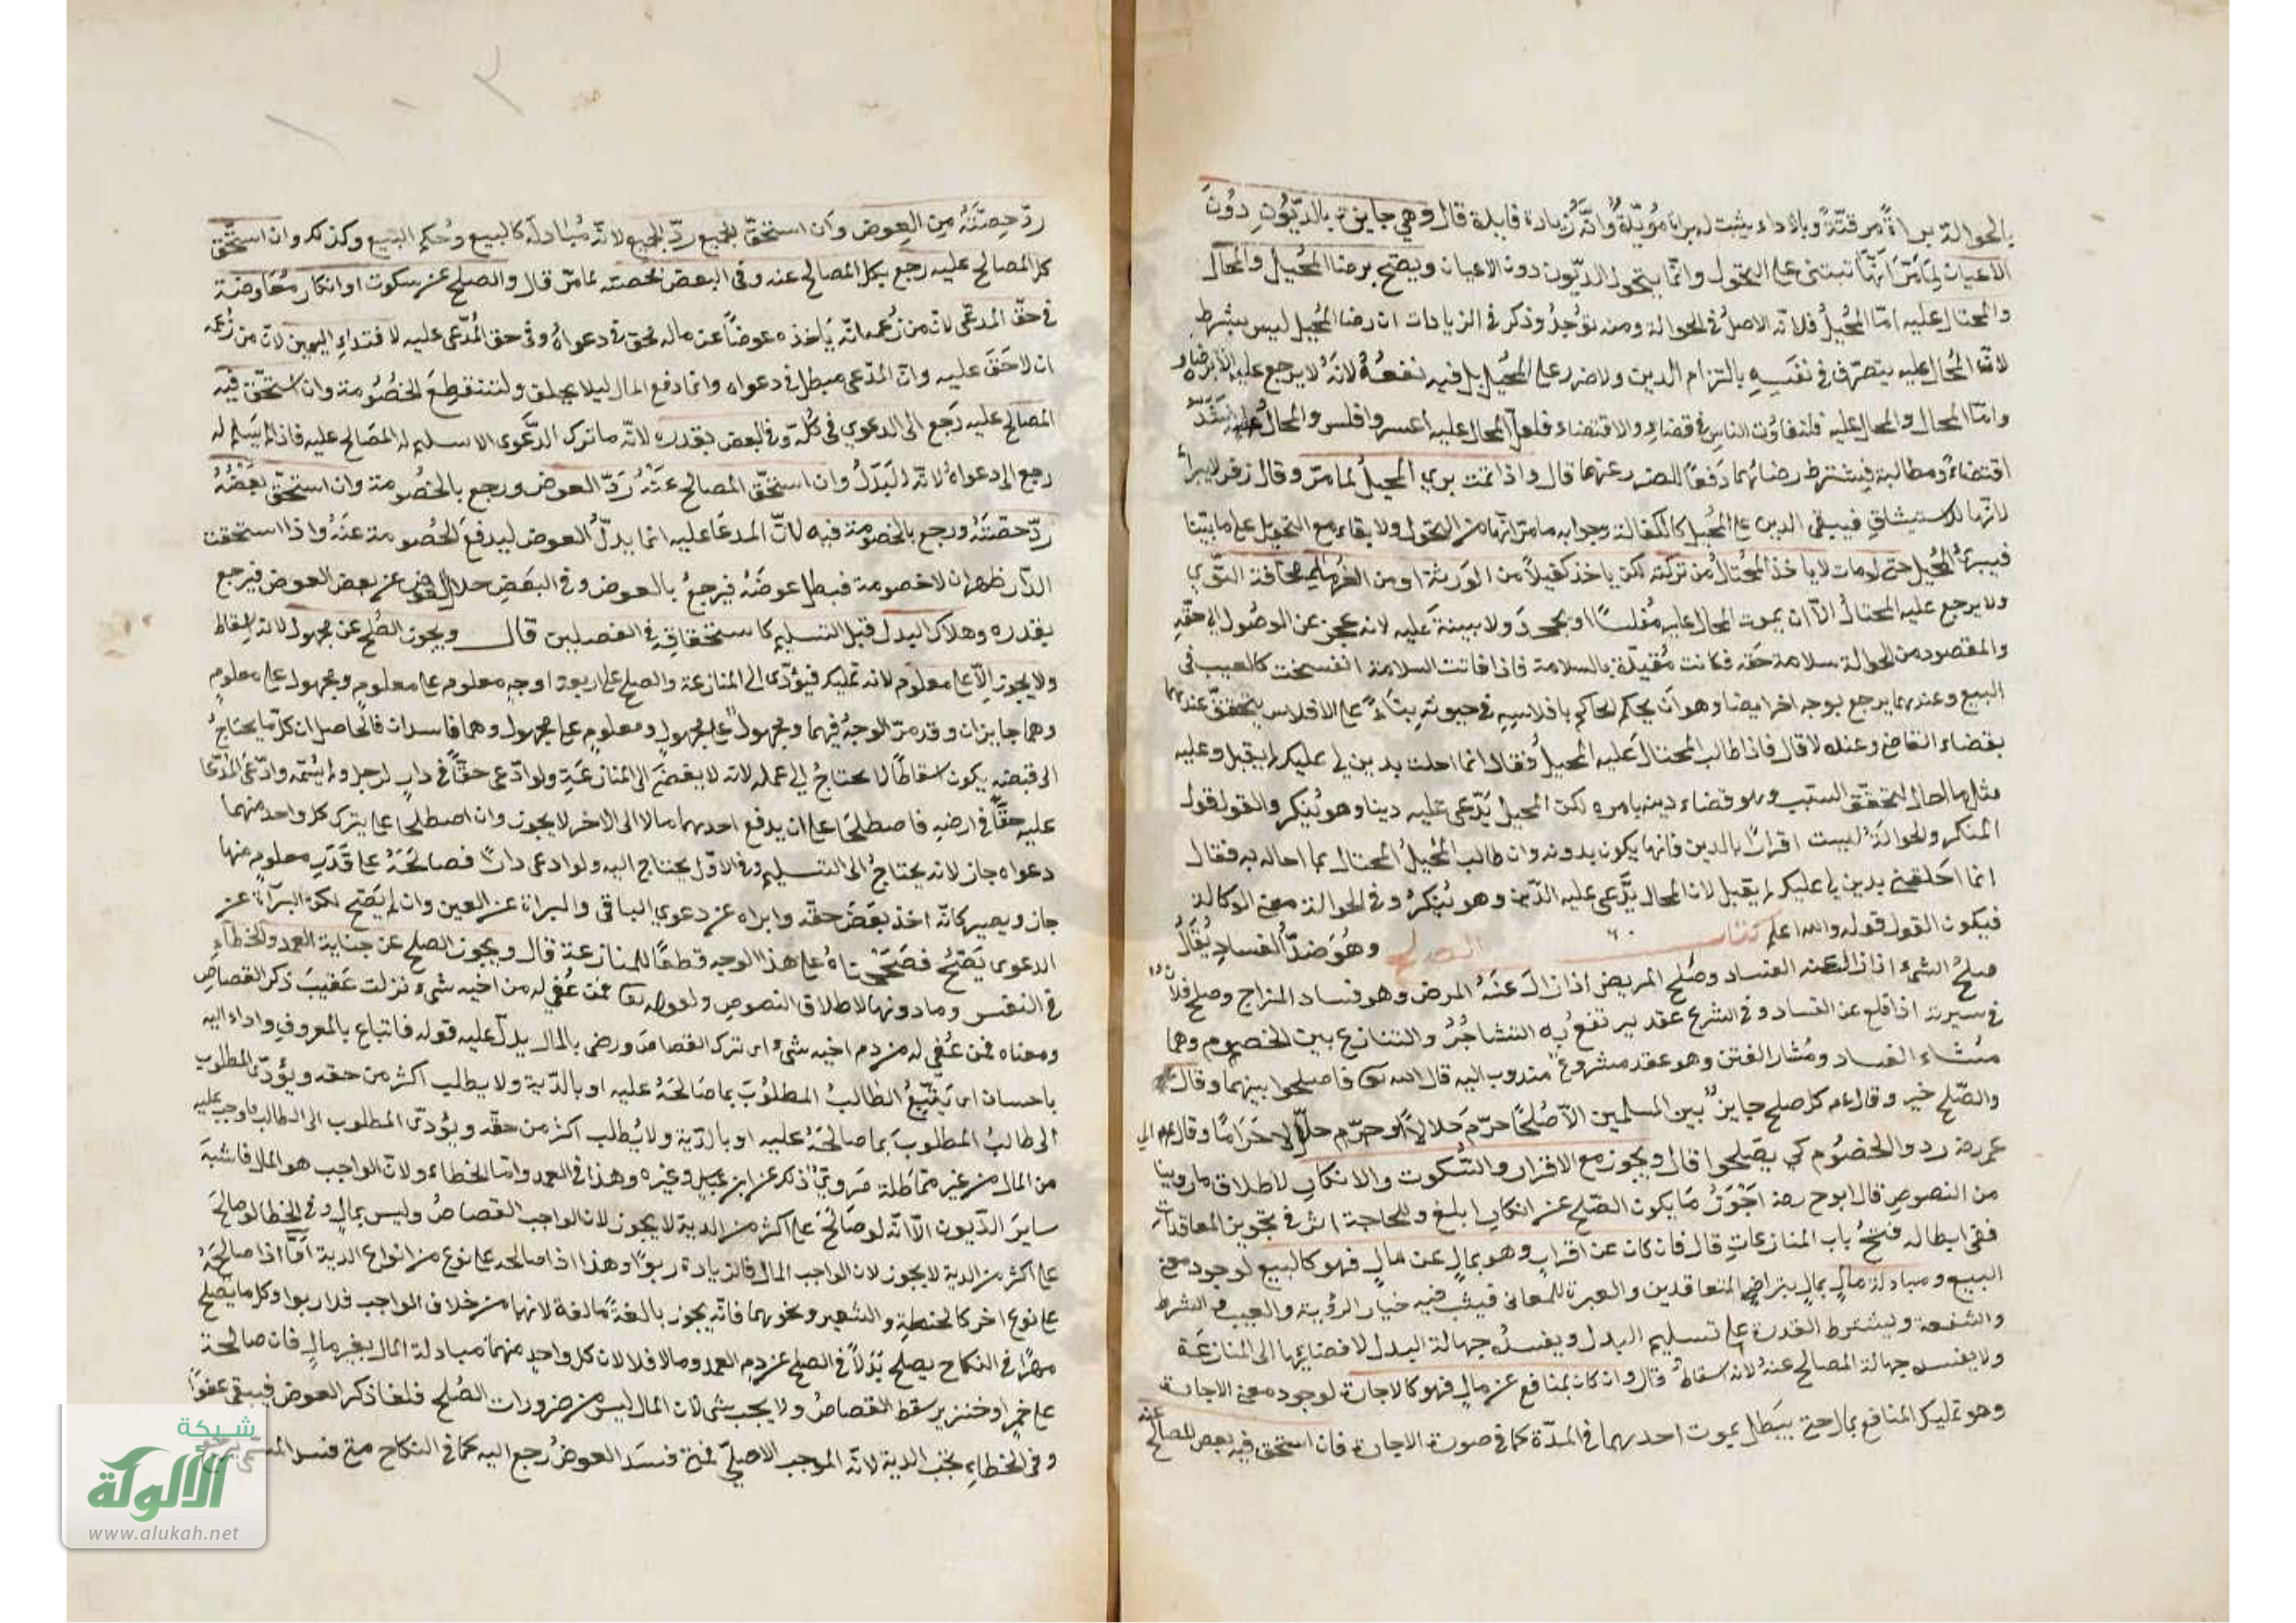 بالحوالة براءةً موقتةً وبالاداء يثبت له براءة مؤبدة وانه زيادة فايدة قال وهي جايزة بالديون دون
الاعيان لما مرّ انها تبتنى على التحول وانما يتحول الديون دون الاعيان ويصح برضا المحيل والمحال
والمحتال عليه امّا المحيل فلانه الاصل في الحوالة ومنه توجد وذكر في الزيادات ان رضا المحيل ليس بشرط
لان المحال عليه يتصرف في نفسه بالتزام الدين ولا ضرر على المحيل بل فيه نفعه لانه لا يرجع عليه الا برضاه
وامّا المحال والمحال عليه فلتفاوت الناس في قضاء والاقتضاء فلعل المحال عليه اعسر وافلس والمحال اشد
اقتضاءً ومطالبة فيشترط رضائهما دفعًا للضرر عنهما قال واذا تمت بري المحيل لما مرّ وقال زفر لا يبرأ
لانها للاستيثاق فيبقى الدين على المحيل كالكفالة وجوابه ما مرّ انها من التحول ولا بقاء مع التحول على ما بيّنا
فيبرئ المحيل حتى لو مات لا يأخذ المحتال من تركته لكن ياخذ كفيلاً من الورثة او من الغرماء مخافة التوي
ولا يرجع عليه المحتال الّا ان يموت المحال عليه مفلسًا او يجحد ولا بينة عليه لانه عجز عن الوصول الى حقه
والمقصود من الحوالة سلامة حقه فكانت مقيدة بالسلامة فاذا فاتت السلامة انفسخت كالعيب في
البيع وعندهما يرجع بوجه اخر ايضا وهو ان يحكم الحاكم بافلاسه في حيوته بناءً على الافلاس يتحقق عندهما
بقضاء القاضي وعنده لا قال فاذا طالب المحتال عليه المحيل فقال انما احلت بدين لي عليك لم يقبل وعليه
مثل ما احال لتحقق السبب وهو قضاء دينه بامره لكن المحيل يدّعي عليه دينا وهو ينكر والقول قول
المنكر والحوالة ليست اقرارًا بالدين فانها يكون بدونه وان طالب المحيل المحتال بما احاله به فقال
انما احلتني بدين لي عليك لم يقبل لان المحال يدّعي عليه الدّين وهو ينكر وفي الحوالة معنى الوكالة
فيكون القول قوله والله اعلم كتاب الصلح وهو ضدّ الفساد يقال
صلح الشيء اذا زال عنه الفساد وصلح المريض اذا زال عنه المرض وهو فساد المزاج وصلح فلانٌ
في سيرته اذا قلع عن الفساد وفي الشرع عقد يرتفع به التشاجر والتنازع بين الخصوم وهما
منشاء الفساد ومثار الفتن وهو عقد مشروع مندوب اليه قال الله تع فاصلحوا بينهما وقال تع
والصّلح خير وقال عم كل صلح جايز بين المسلمين الّا صلحًا حرّم حلالاً او احلّ حرامًا وقال
عمر رضه ردوا الخصوم كي يصطلحوا قال ويجوز مع الاقرار والسكوت والانكار لاطلاق ما روينا
من النصوص قال ابوح رضه اجوز ما يكون الصّلح عن انكار ابلغ وللحاجة اثر في تجويز المعاقدات
ففي ابطاله فتح باب المنازعات قال فان كان عن اقرار وهو بمال عن مال فهو كالبيع لوجود معنى
البيع ومبادلة مال بمال بتراضي المتعاقدين والعبرة للمعاني فيثبت فيه خيار الرؤية والعيب والشرط
والشفعة ويشترط القدرة على تسليم البدل ويفسد جهالة البدل لافضائها الى المنازعة
ولا يفسد جهالة المصالح عنه لانه اسقاط قال وان كان بمنافع عن مال فهو كالاجارة لوجود معنى الاجارة
وهو تمليك المنافع بمال حتى يبطل بموت احدهما في المدّة كما في صورة الاجارة فان استحق فيه بعض المصالح عنه
ردّ حصته من العوض وان استحق الجميع ردّ الجميع لانه مبادلة كالبيع وحكم البيع وكذلك وان استحق
كل المصالح عليه رجع بكل المصالح عنه وفي البعض بحصته لما مرّ قال والصلح عن سكوت او انكار معاوضة
في حق المدعي لان من زعمه انه ياخذه عوضًا عن ماله لمحق في دعواه وفي حق المدعى عليه لافتداء اليمين لان من زعمه
ان لا حق عليه وان المدّعي مبطل في دعواه وانما دفع المال ليلا يحلف ولتنقطع الخصومة وان استحق فيه
المصالح عليه رجع الى الدعوي في كله وفي البعض بقدره لانه ما ترك الدعوى الا ليسلم له المصالح عليه فاذا لم يسلم له
رجع الى دعواه لانه البدل وان استحق المصالح عنه ردّ العوض ورجع بالخصومة وان استحق بعضه
ردّ حصته ورجع بالخصومة فيه لان المدعا عليه انما بذل العوض ليدفع الخصومة عنه واذا استحقت
الدّار ظهر ان لا خصومة فبطل عوضه فيرجع بالعوض وفي البعض خلا العوض عن بعض العوض فيرجع
بقدره وهلاك البدل قبل التسليم كاستحقاقه في الفصلين قال ويجوز الصلح عن مجهول لانه اسقاط
ولا يجوز الّا على معلوم لانه تمليك فيؤدّى الى المنازعة والصلح على اربعة اوجه معلوم على معلوم ومجهول على معلوم
وهما جايزان وقد مرّ الوجه فيهما ومجهول على مجهول ومعلوم على مجهول وهما فاسدان فالحاصل ان كل ما يحتاج
الى قبضه يكون اسقاطًا لا يحتاج الى عمله لانه لا يفضي الى المنازعة ولو ادّعى حقًّا في دار لرجل ولم يسمه وادّعى المدّعا
عليه حقًّا في ارضه فاصطلحا على ان يدفع احدهما مالا الى الاخر لا يجوز وان اصطلحا على يترك كل واحد منهما
دعواه جاز لانه يحتاج الى التسليم وفي الاوّل يحتاج اليه ولو ادعى دارًا فصالحه على قدر معلوم منها
جاز ويصير كانه اخذ بعض حقه وابراه عن دعوي الباقي والبراة عن العين وان لم يصح لكن البراة عن
الدعوى يصح فصححناه على هذا الوجه قطعًا للمنازعة قال ويجوز الصلح عن جناية العمد والخطاء
في النفس وما دونها لاطلاق النصوص ولقوله تع فمن عفي له من اخيه شيء نزلت عقيب ذكر القصاص
ومعناه فمن عفي له من دم اخيه شيء اى ترك القصاص ورضى بالمال يدلّ عليه قوله فاتباع بالمعروف واداء اليه
باحسان اى يتبع الطالب المطلوب بما صالحه عليه او بالدّية ولا يطلب اكثر من حقه ويؤدّى المطلوب
الى طالب المطلوب بما صالحه عليه او بالدّية ولا يطلب اكثر من حقّه ويؤدّى المطلوب الى الطالب ما وجب عليه
من المال من غير مماطلة مروي ذلك عن ابن عباس وغيره وهذا في العمد وامّا الخطاء ولان الواجب هو المال فاشبه
ساير الدّيون الّا انه لو صالح على اكثر من الدية لا يجوز لان الواجب القصاص وليس بمال وفي الخطا لو صالح
على اكثر من الدية لا يجوز لان الواجب المال فالزيادة ربوًا وهذا اذا صالحه على نوع من انواع الدية امّا اذا صالحه
على نوع اخر كالحنطة والشعير ونحوهما فانه يجوز بالغةً ما بلغه لانها من خلاف الواجب فلا ربوا وكل ما يصلح
مهرًا في النكاح يصلح بدلاً في الصلح عن دم العمد وما لا فلا لان كل واحد منهما مبادلة المال بغير مال فان صالحه
على خمر او خنزير سقط القصاص ولا يجب شي لان المال ليس من ضرورات الصّلح فلغا ذكر العوض فيبقى عفوًا
وفي الخطاء تجب الدية لانه الموجب الاصلي فمتى فسد العوض رجع اليه كما في النكاح متى فسد
شبكة
الألوكة
www.alukah.net